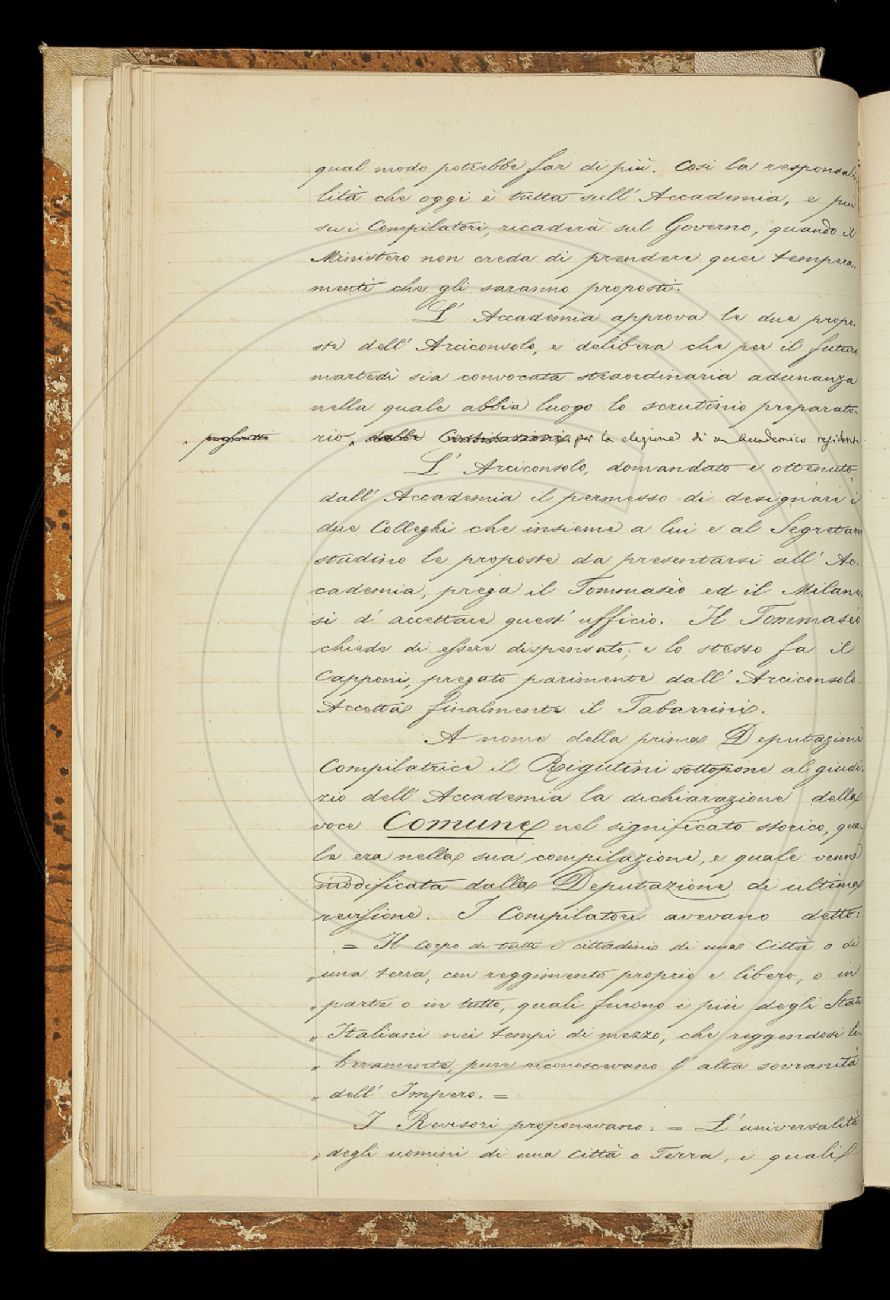 qual modo potrebbe far di più. Così la responsabi
lità che oggi è tutta sull' Accademia, e più
su i Compilatori, ricaderà sul Governo, quando il
Ministero non creda di prendere quei tempera-
menti che gli saranno proposti.
L' Accademia approva le due propo-
ste dell' Arciconsolo, e delibera che per il futuro
martedì sia convocata straordinaria adunanza
nella quale abbia luogo lo scrutinio preparato-
rio, per la elezione di un Accademico residente.
L' Arciconsolo, domandato e ottenuto
dall' Accademia il permesso di designare i
due Colleghi che insieme a lui e al Segretario
studino le proposte da presentarsi all' Ac-
cademia, prega il Tommasèo ed il Milane-
si d' accettare quest' ufficio. Il Tommasèo
chiede di essere dispensato; e lo stesso fa il
Capponi, pregato parimente dall' Arciconsolo.
Accetta finalmente il Tabarrini.
A nome della prima Deputazione
Compilatrice il Rigutini sottopone al giudi-
zio dell' Accademia la dichiarazione della
voce Comune nel significato storico, qua-
le era nella sua compilazione, e quale venne
modificata dalla Deputazione di ultima
revisione. I Compilatori avevano detto:
= Il Corpo di tutti i cittadini di una Città o di
" una terra, con reggimento proprio e libero, o in
" parte o in tutto, quali furono i più degli Stati
" Italiani nei tempi di mezzo, che reggendosi li-
" beramente, pure riconoscevano l' alta sovranità
" dell' Impero. =
I Revisori proponevano: = L' universalità
" degli uomini di una Città o Terra, i quali